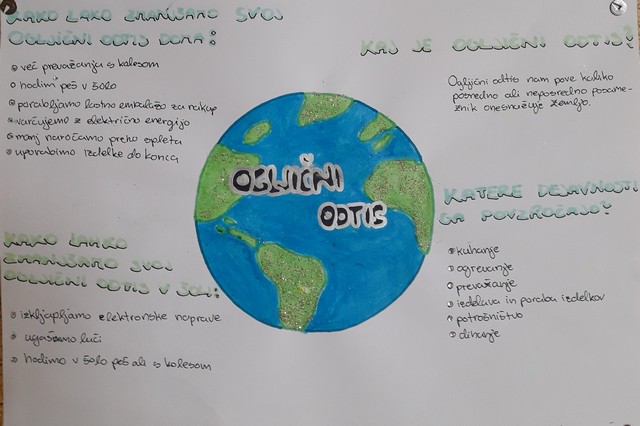 KAKO LAHKO ZMANJŠAMO SVOJ
OGLJIČNI ODTIS DOMA?
več prevažanja s kolesom
hodimo peš v šolo
porabljamo lastno embalažo za nakup
varčujemo z električno energijo
manj naročamo preko spleta
uporabimo izdelke do konca
KAKO LAHKO
ZMANJŠAMO SVOJ
OGLJIČNI ODTIS V ŠOLI?
izkljapljamo elektronske naprave
ugašamo luči
hodimo v šolo peš ali s kolesom
OGLJIČNI
ODTIS
KAJ JE OGLJIČNI ODTIS?
Ogljični odtis nam pove koliko
posredno ali neposredno posame-
znik onesnažuje Zemljo.
KATERE DEJAVNOSTI
GA POVZROČAJO?
kuhanje
ogrevanje
prevažanje
izdelava in poraba izdelkov
potrošništvo
dihanje